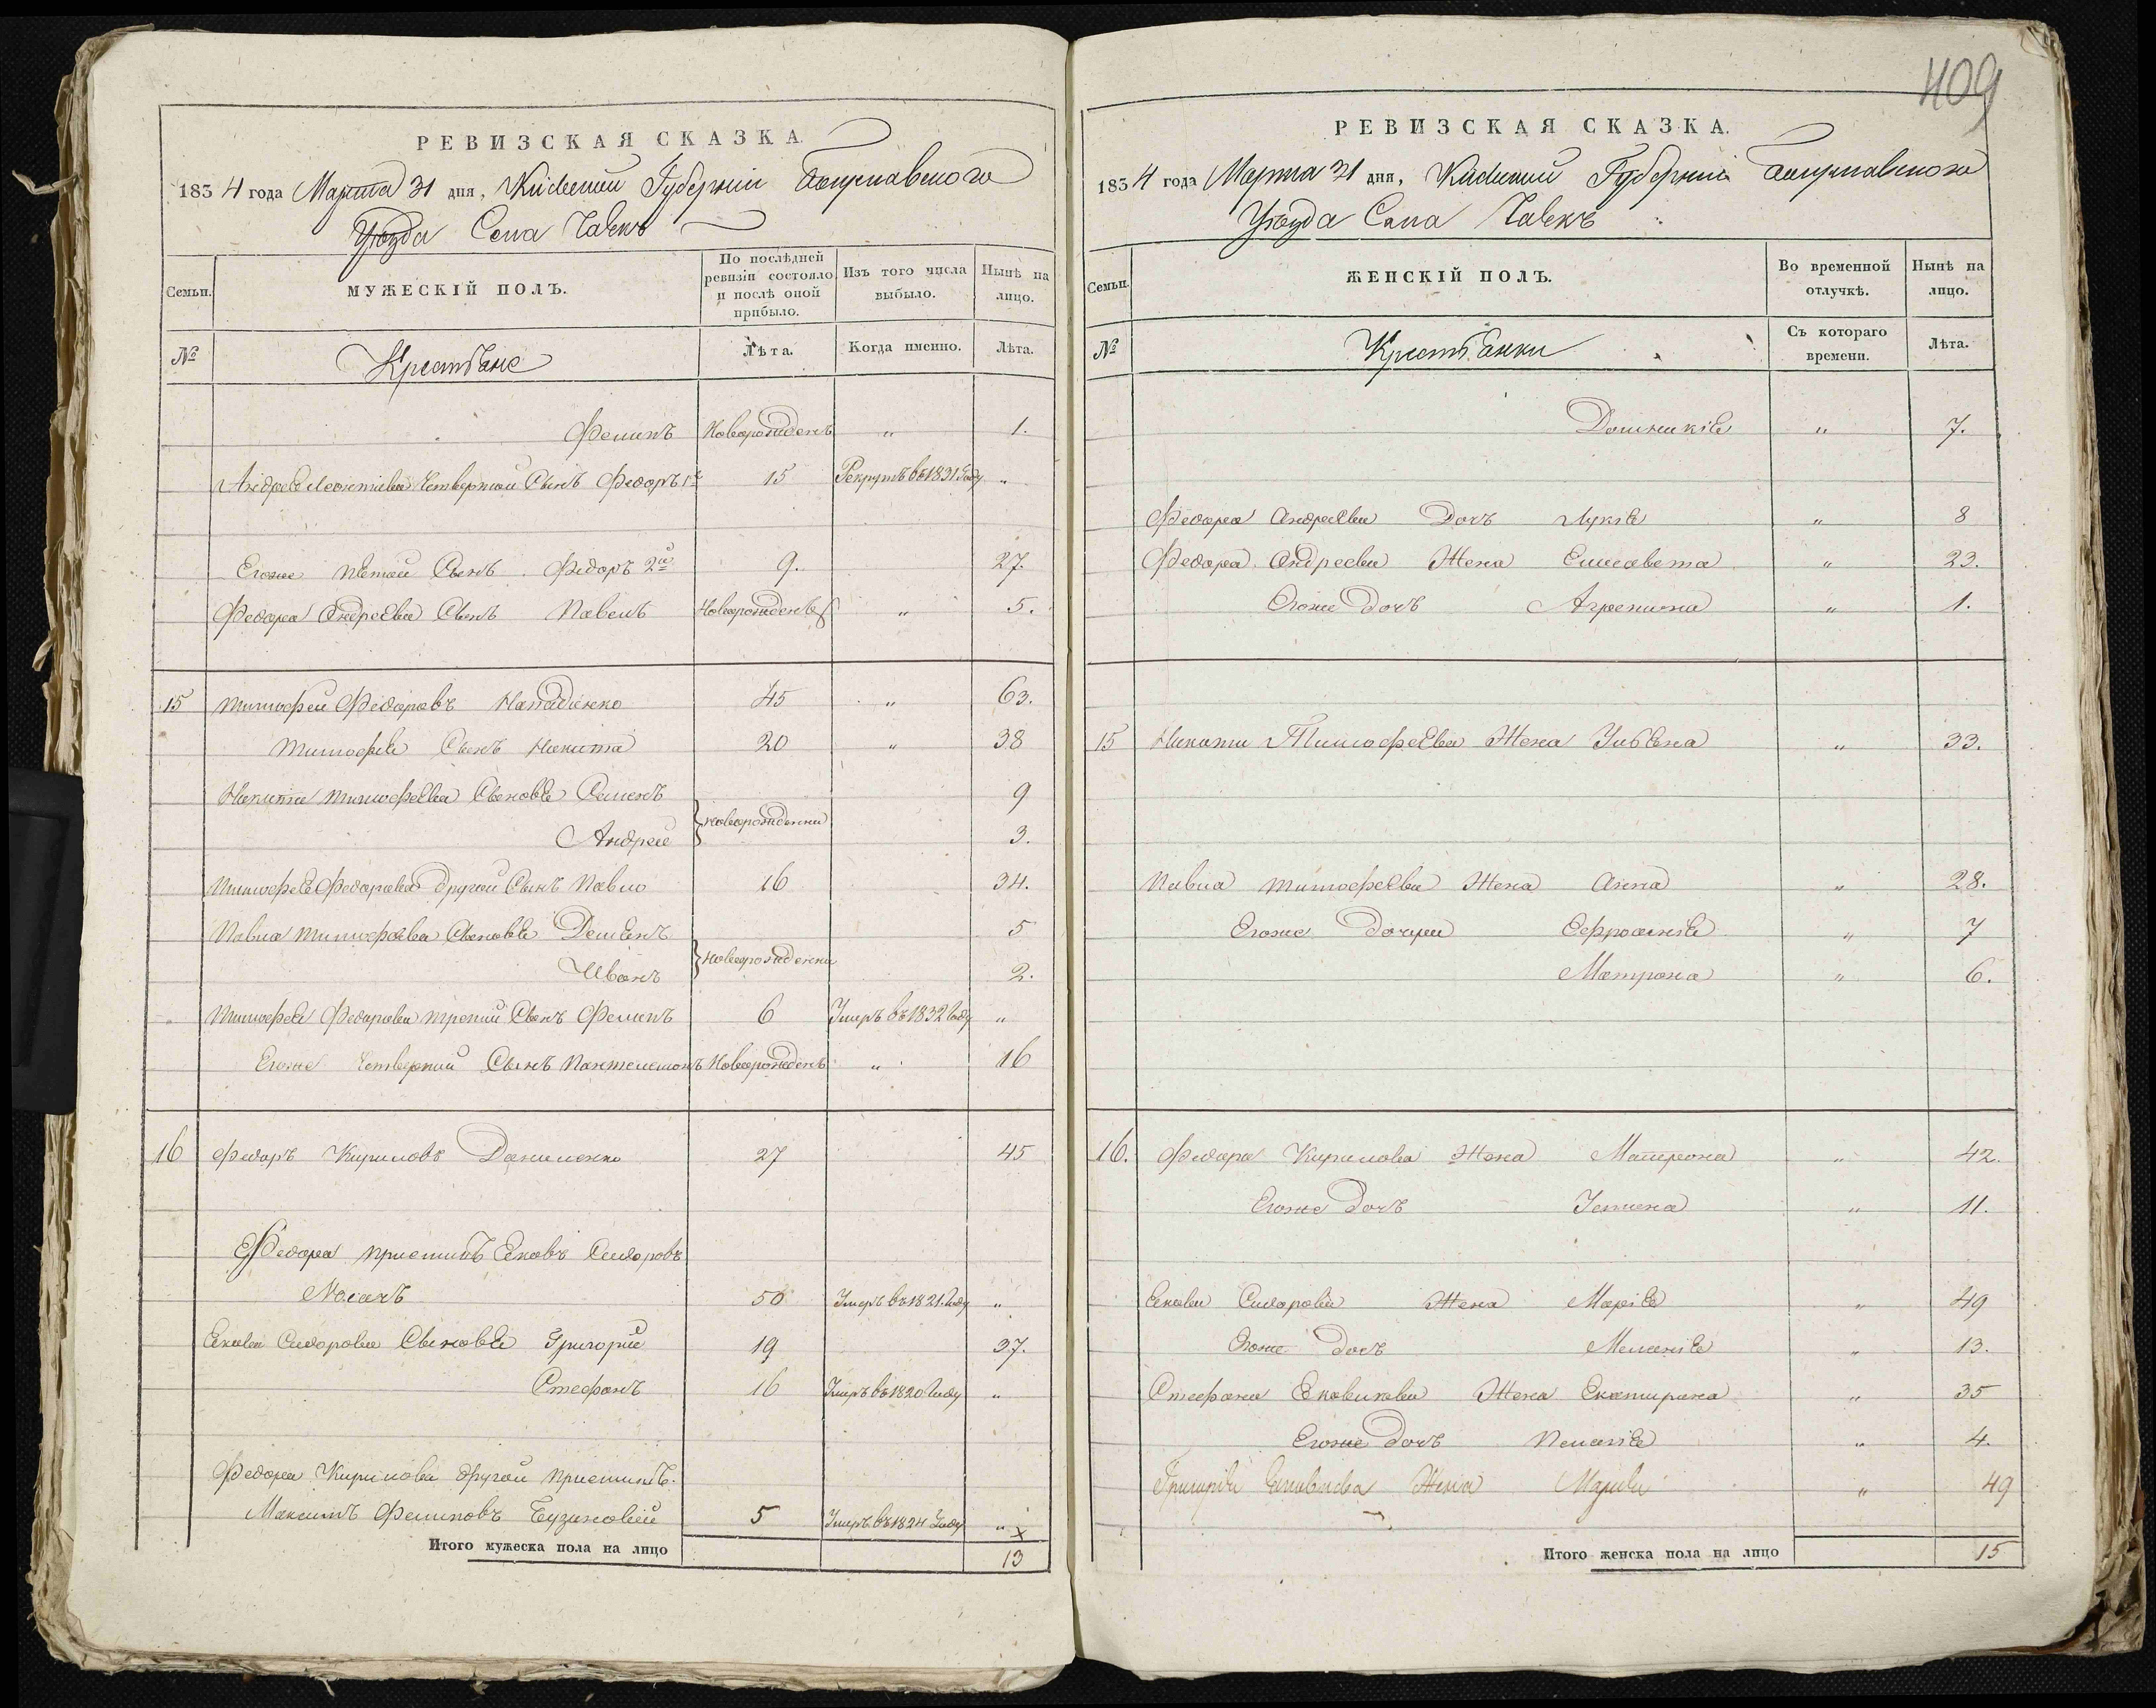 409
РЕВИЗСКАЯ СКАЗКА.
1834 года Марта 31 дня, Киевской Губернии Богуславского
Уѣзда Села
Семьи.
МУЖЕСКІЙ ПОЛЪ.
По послѣдней ревизіи состояло и послѣ оной прибыло.
Изъ того числа выбыло.
Нынѣ на лицо.
№
Крестьяне
Лѣта.
Когда именно.
Лѣта.
Филипъ Новорожденъ " 1.
Андрея Леонтіева Четвертой Сынъ Федоръ 1й 15 Рекрутъ въ 1831 Году "
Егоже Пятой Сынъ Федоръ 2й 9. 27.
Федора Андреева Сынъ Павелъ Новорожденъ " 5.
15 Тимофей Федоровъ 45 " 63.
Тимофея Сынъ Никита 20 " 38
Никиты Тимофеева Сыновья Семенъ 9
Андрей новорожденни 3.
Тимофея Федорова Другой Сынъ Павло 16 34.
Павла Тимофеева Сыновья Демьянъ 5
Иванъ новорожденни 2.
Тимофея Федорова третій Сынъ Филипъ 6 Умеръ въ 1832 Году "
Егоже Четверпий Сынъ Пантелемонъ Новорожденъ " 16
16 Федоръ Кириловъ Даниленко 27 45
Федора приемышъ Яковъ Сидоровъ
50 Умеръ въ 1821 Году "
Якова Сидорова Сыновья Григорій 19 37.
Стефанъ 16 Умеръ въ 1820 Году "
Федора Кирилова другой приемышъ
Максимъ Филиповъ 5 Умеръ въ 1824 Году "
Итого мужеска пола на лицо 13
РЕВИЗСКАЯ СКАЗКА.
1834 года Марта 31 дня, Киевской Губернии Богуславского
Уѣзда Села
Семьи.
ЖЕНСКІЙ ПОЛЪ.
Во временной отлучкѣ.
Нынѣ на лицо.
№
Крестьянки
Съ котораго времени.
Лѣта.
Домникія " 7.
Федора Андреева Дочь Лукія " 8
Федора Андреева Жена Елисавета " 23.
Егоже Дочь Агрепина " 1.
15 Никиты Тимофеева Жена Ульяна " 33.
Павла Тимофеева Жена Анна " 28.
Егоже Дочери Ефросинія " 7
Матрона " 6.
16. Федора Кирилова Жена Матрона " 42.
Егоже Дочь Устина " 11.
Якова Сидорова Жена Марія " 49
Егоже Дочь Меланія " 13.
Стефана Яковлева Жена Екатирина " 35
Егоже Дочь Пелагія " 4.
Григорія Яковлева Жена Марія " 49
Итого женска пола на лицо 15